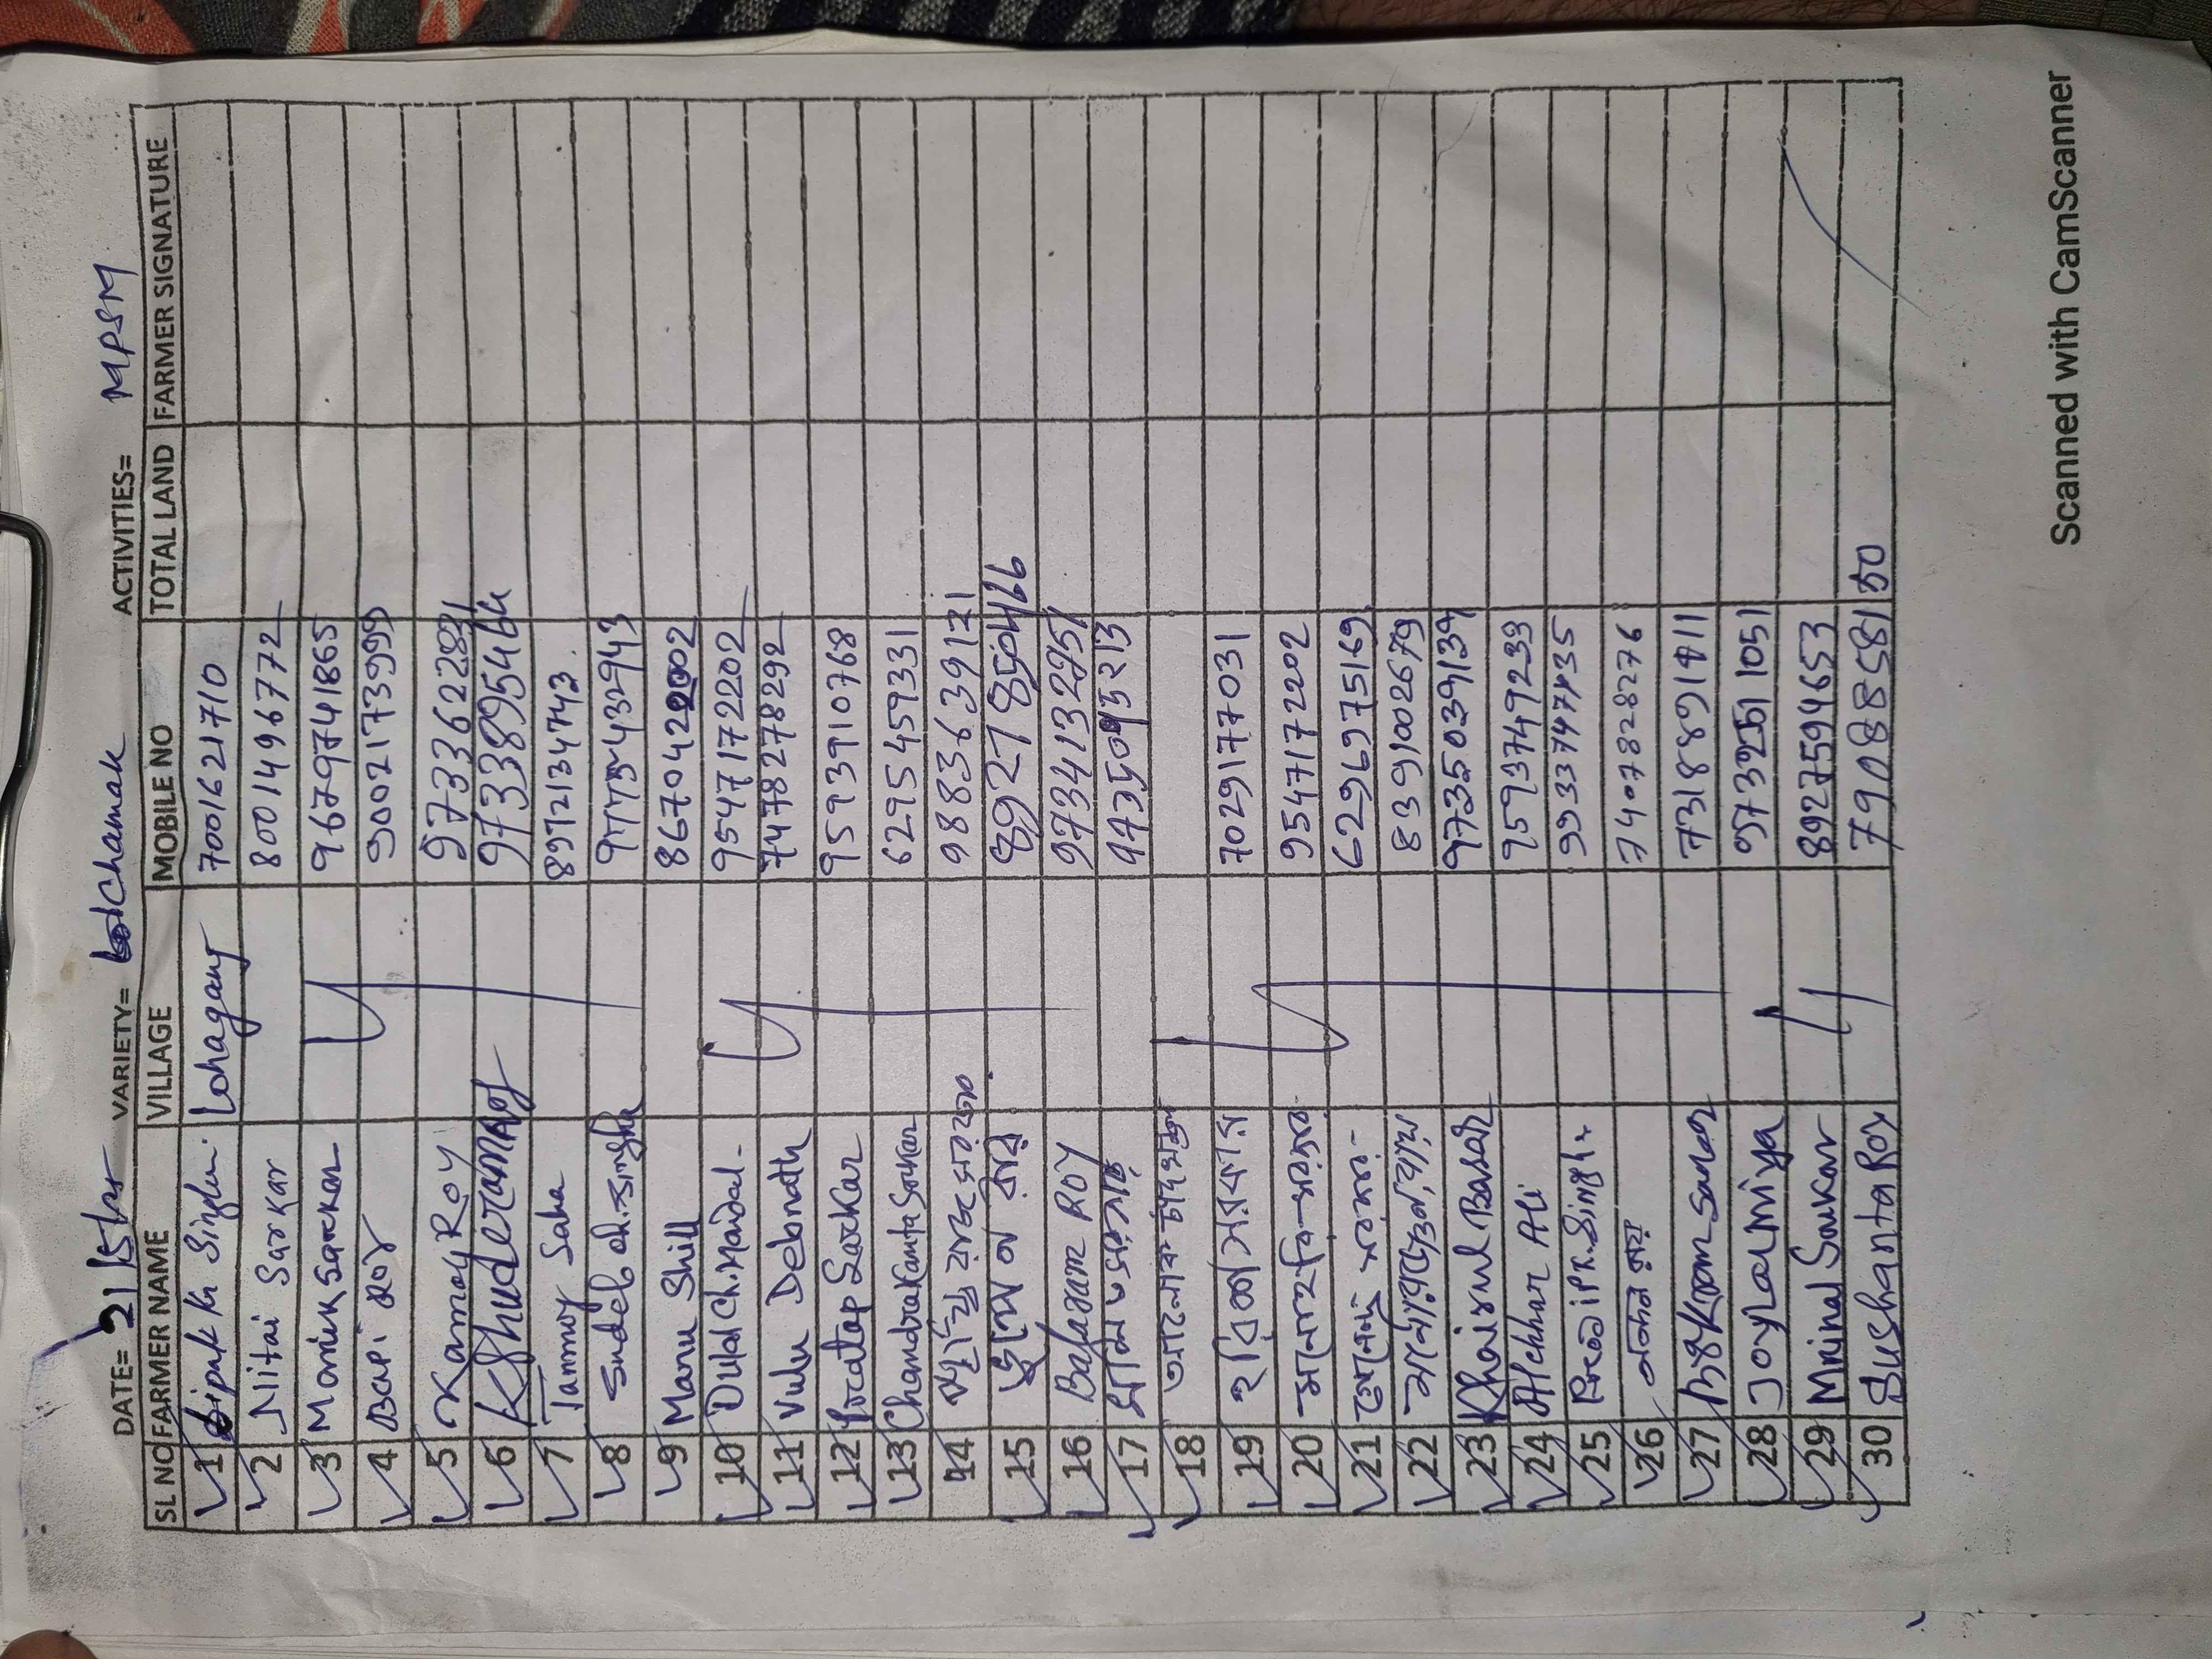 DATE= 21/5/ VARIETY= Chamak ACTIVITIES= MPSM
SL NO FARMER NAME VILLAGE MOBILE NO TOTAL LAND FARMER SIGNATURE
1 Dipak Kr Singha Lohaganj 7001621710
2 Nitai Sarkar 8001496772
3 Manik Sarkar 9679741865
4 Bapi Roy 9002173999
5 Kamal Roy 973362283
6 Kshuderam Roy 9733895464
7 Tanmoy Saha 8972134743
8 Sudeb ch. Singha 9773432943
9 Manu Shill 8670422002
10 Dulal Ch. Mandal 9547172202
11 Vulu Debnath 7478278292
12 Protap Sarkar 9593910768
13 Chandra Kanta Sarkar 6295459331
14 9883639121
15 রায়
16 Balaram Roy 9734132951
17
18
19 হরিবন্ধু সরকার 7029177031
20 সরকার 9547172202
21 সরকার 6296975169
22 8391002679
23 Khairul Basar 9735039139
24 Alchhar Ali 9593749233
25 Singha 9933747435
26 রায় 7407828276
27 Bikram Sarkar
28 Joylal Miya 9732511051
29 Mrinal Sarkar 8927594653
30 Sushanta Roy
Scanned with CamScanner